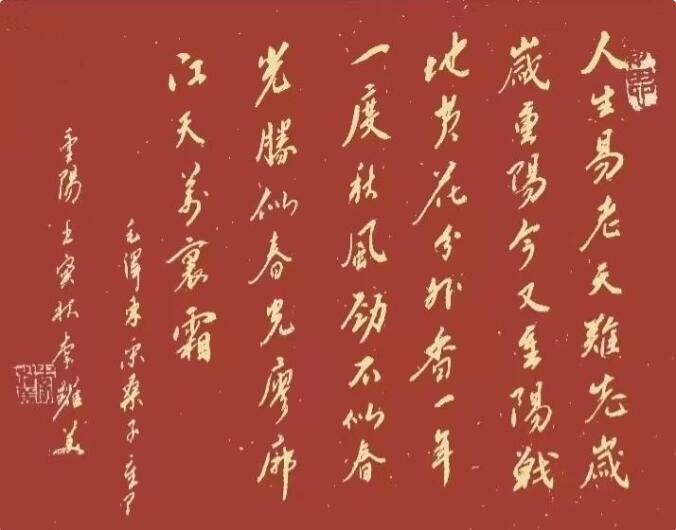 人生易老天難老歲
歲重陽今又重陽戰
地黄花分外香一年
一度秋風勁不似春
光勝似春光廖廓
江天萬裏霜
毛澤東采桑子
重陽壬寅秋李